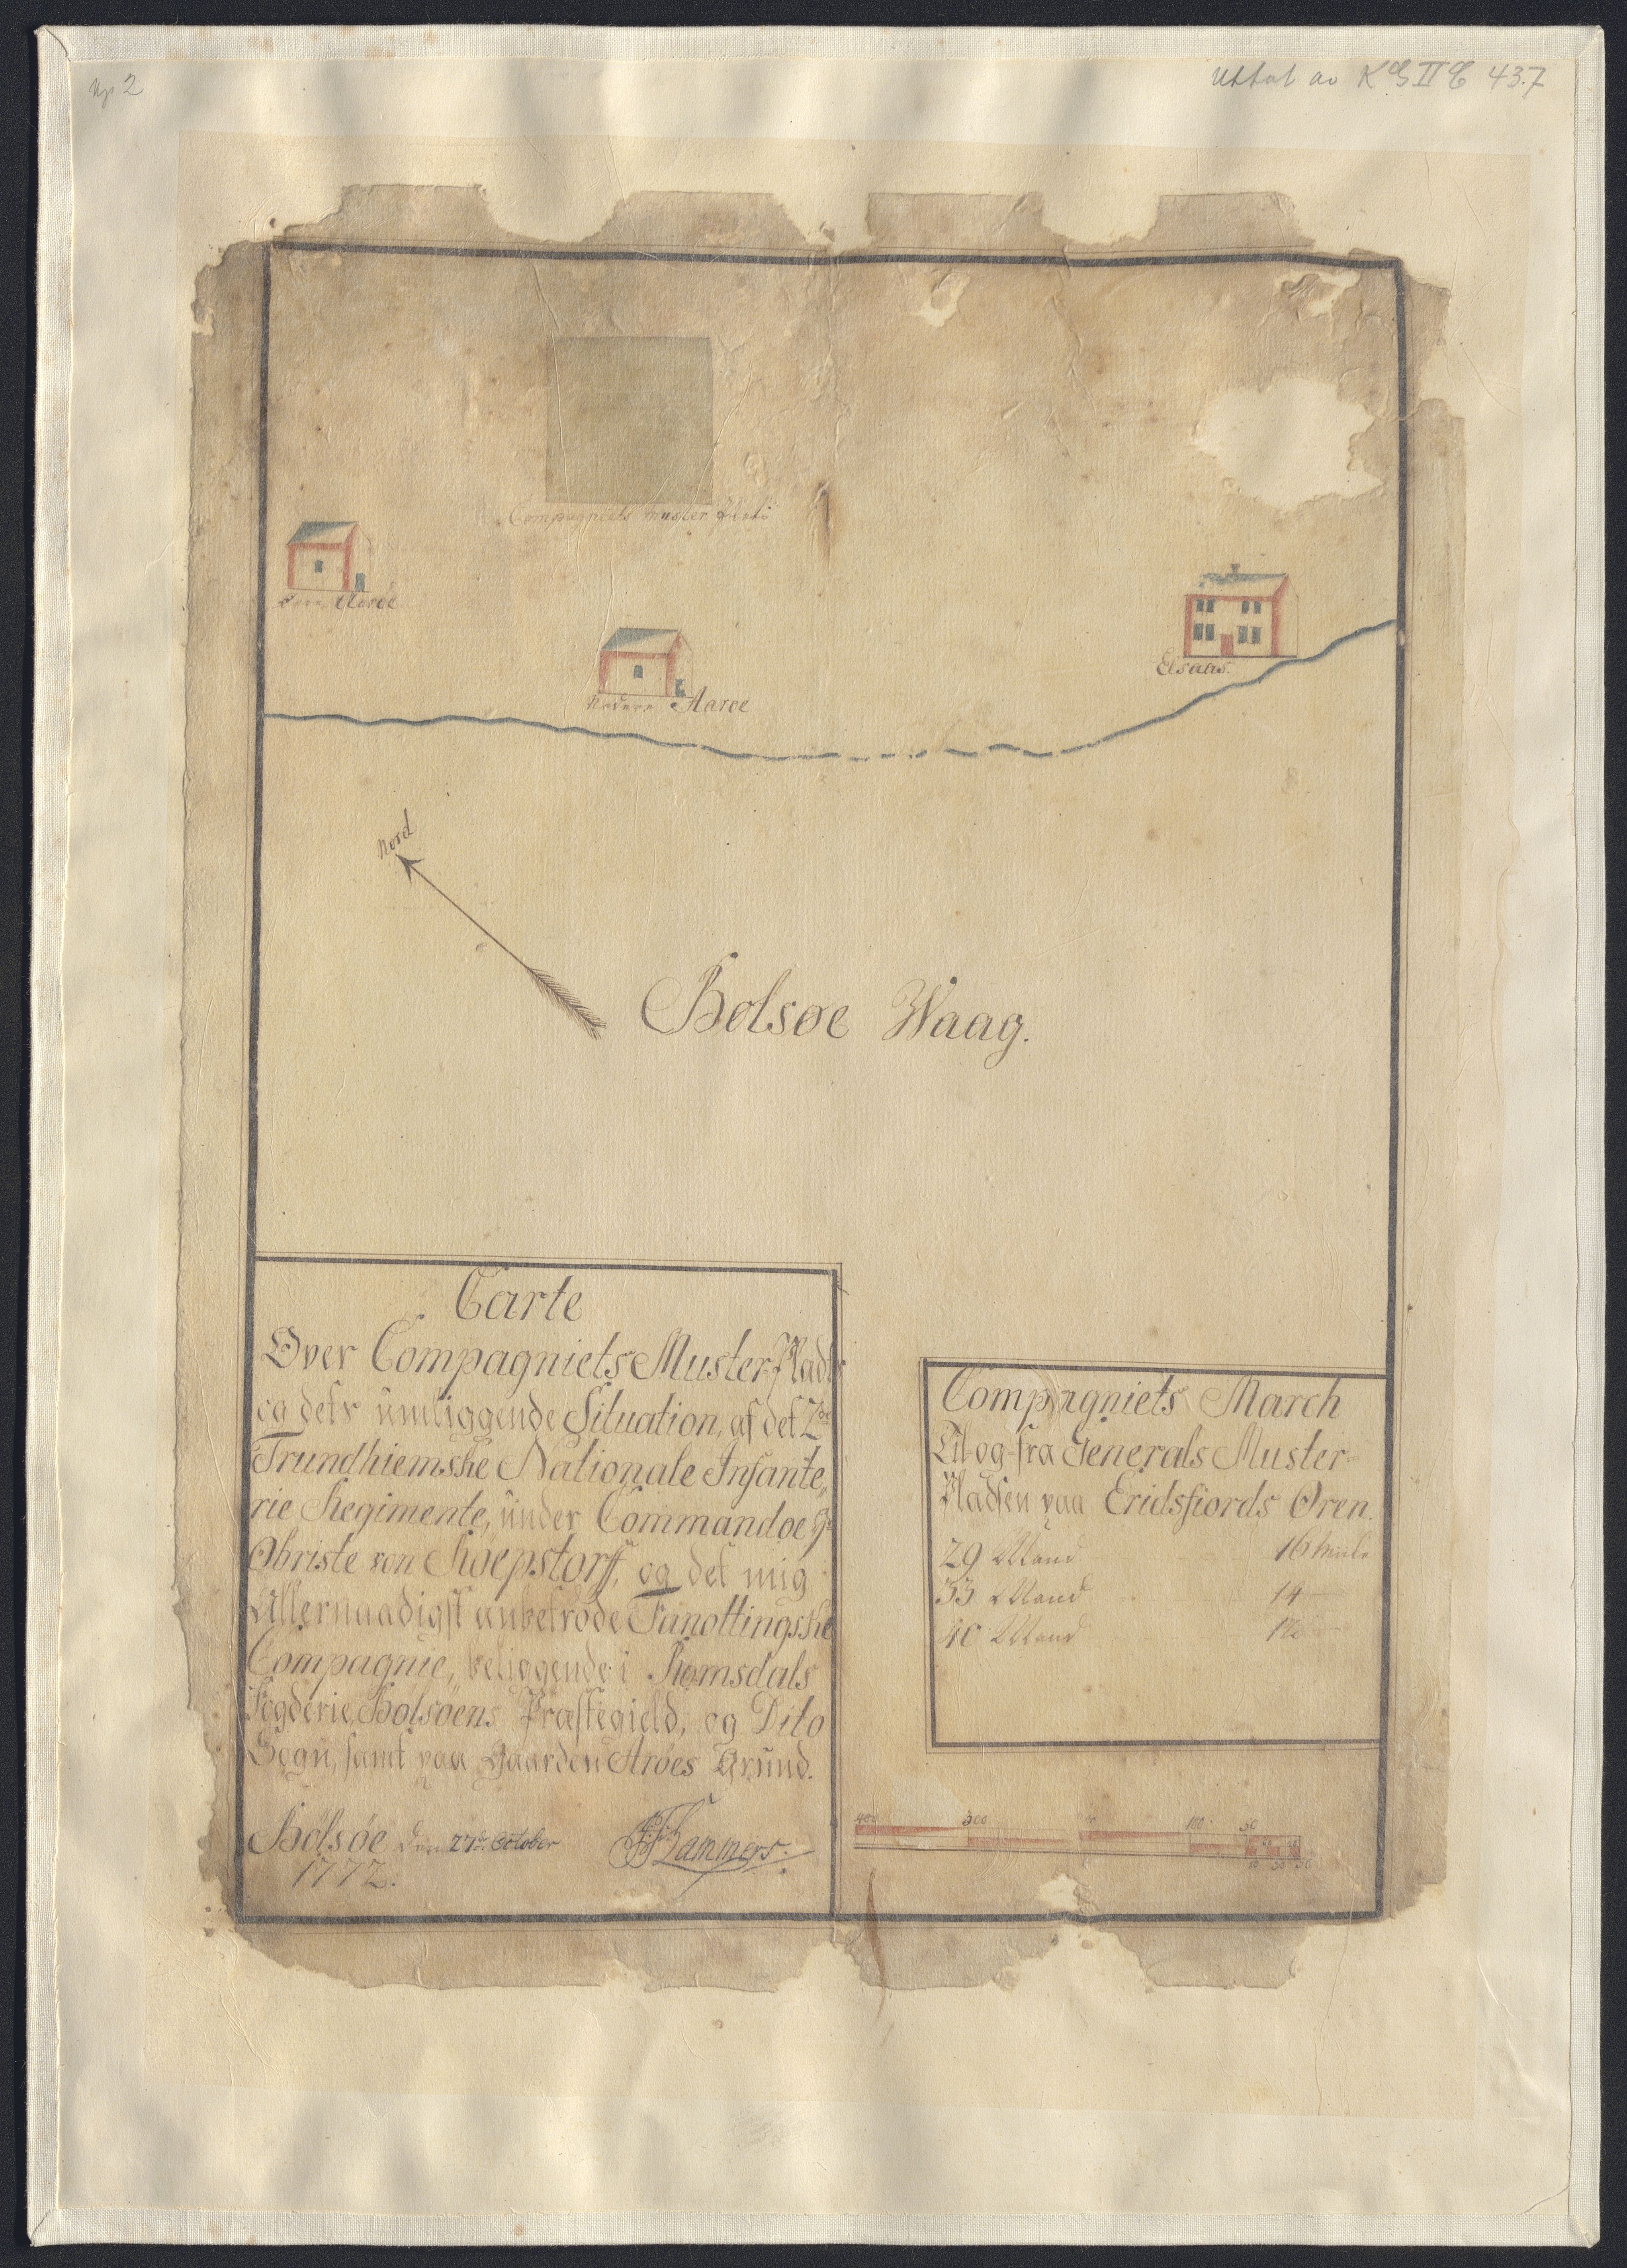 No 2
Uttat av KGIIC 43.7
Compagniets Muster Plads
Øvre Aaroe
Nedere Aaroe
Elsaas.
Nord
Bolsøe Waag.
Carte
Over Compagniets Muster-Plads
og dets ümliggende Situation, af det 2de
Trundhiemske Nationale Infante,
rie Regimente, ünder Commandoe Hr
Obriste von Röepstorff, og det mig
Allernaadigst anbetrode Fanottingske
Compagnie, beliggende i Romsdals
Fogderie, Bolsøens Præstegield, og Dito
Sogn, samt paa Gaarden Aröes Gründ.
Bolsøe Den 27de October
1772.
Lammers.
Compagniets March
Til og fra Generals Muster-
Pladsen paa Eridsfiords Øren.
29 Mand 16 Miile
33 Mand 14 —
40 Mand 12 —
400 300 100 50
10 30 50